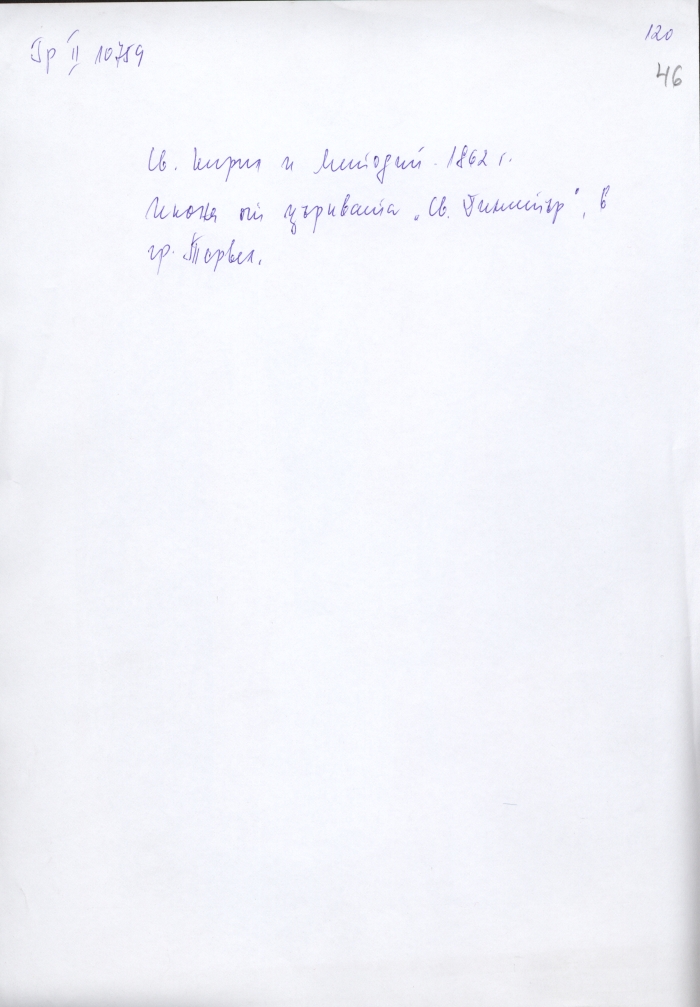 Гр II 10759
120
46
Св. Кирил и Методий. 1862 г.
Икона от църквата „Св. Димитър", в
гр. Тервел.